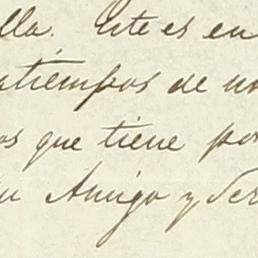 lla. Este es en
atiempos de un
os que tiene por
su Amigo y Ser